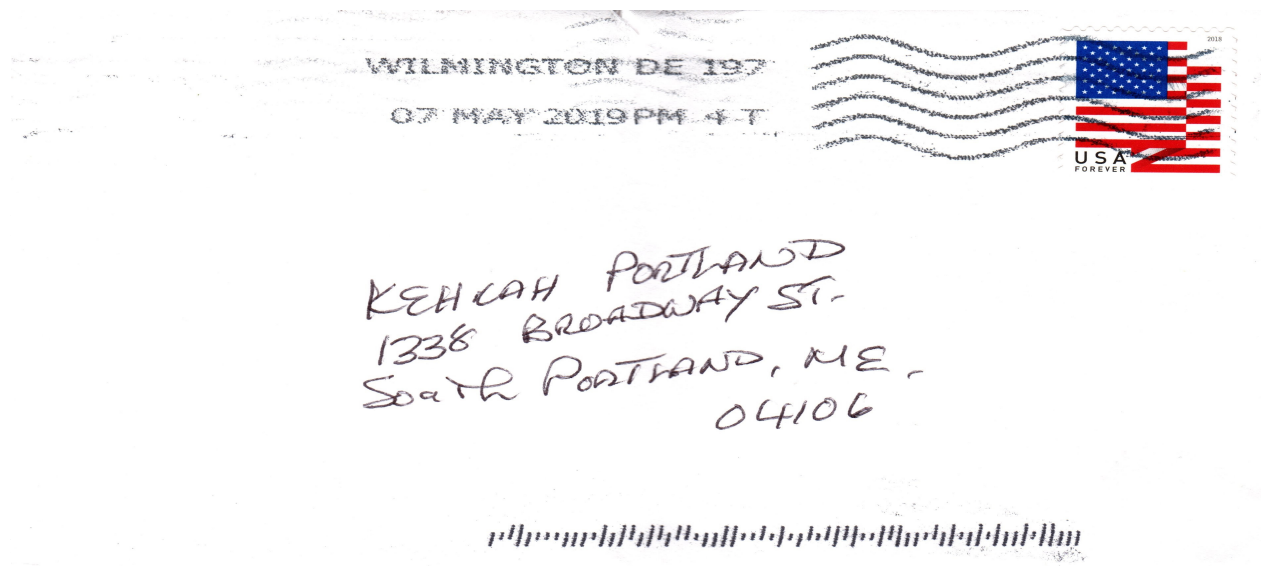 WILMINGTON DE 197
07 MAY 2019 PM 4 T
2018
USA
FOREVER
KEHKAH PORTLAND
1338 BROADWAY ST.
South PORTLAND, ME.
04106